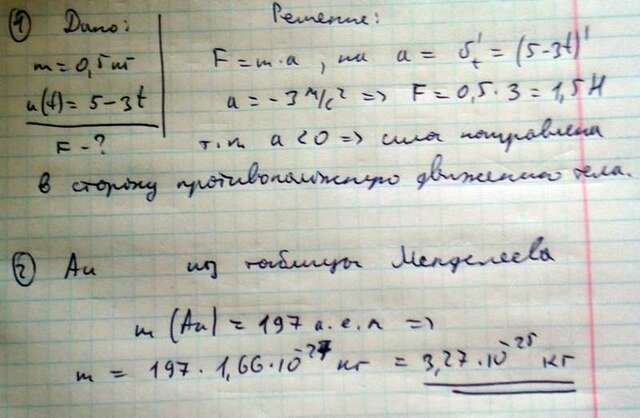 ① Дано: Решение:
m = 0,5 кг F = m·a, на a = v'ₜ = (5-3t)'
u(t) = 5-3t a = -3 м/с² => F = 0,5·3 = 1,5 Н
F - ? т.к. a < 0 => сила направлена
в сторону противоположную движению тела.
② Au из таблицы Менделеева
m (Au) = 197 а.е.м =>
m = 197 · 1,66·10⁻²⁷ кг = 3,27·10⁻²⁵ кг